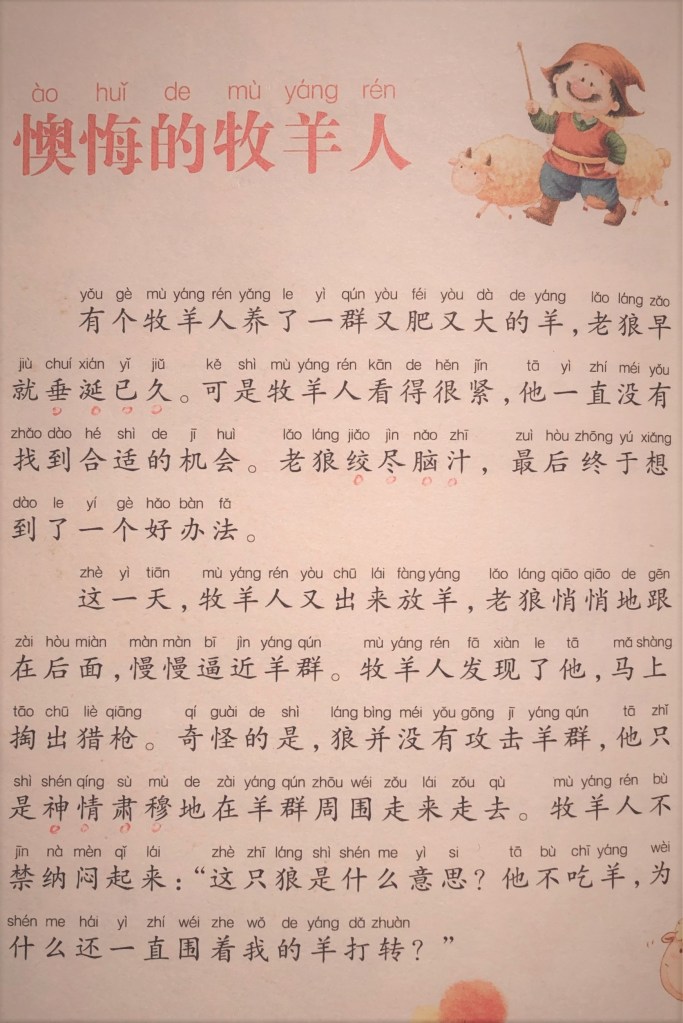 ào huǐ de mù yáng rén
懊悔的牧羊人
yǒu gè mù yáng rén yǎng le yì qún yòu féi yòu dà de yáng lǎo láng zǎo
有个牧羊人养了一群又肥又大的羊，老狼早
jiù chuí xián yǐ jiǔ kě shì mù yáng rén kān de hěn jǐn tā yì zhí méi yǒu
就垂涎已久。可是牧羊人看得很紧，他一直没有
zhǎo dào hé shì de jī huì lǎo láng jiǎo jìn nǎo zhī zuì hòu zhōng yú xiǎng
找到合适的机会。老狼绞尽脑汁，最后终于想
dào le yí gè hǎo bàn fǎ
到了一个好办法。
zhè yì tiān mù yáng rén yòu chū lái fàng yáng lǎo láng qiāo qiāo de gēn
这一天，牧羊人又出来放羊，老狼悄悄地跟
zài hòu miàn màn màn bī jìn yáng qún mù yáng rén fā xiàn le tā mǎ shàng
在后面，慢慢逼近羊群。牧羊人发现了他，马上
tāo chū liè qiāng qí guài de shì láng bìng méi yǒu gōng jī yáng qún tā zhǐ
掏出猎枪。奇怪的是，狼并没有攻击羊群，他只
shì shén qíng sù mù de zài yáng qún zhōu wéi zǒu lái zǒu qù mù yáng rén bù
是神情肃穆地在羊群周围走来走去。牧羊人不
jīn nà mèn qǐ lái zhè zhī láng shì shén me yì si tā bù chī yáng wèi
禁纳闷起来：“这只狼是什么意思？他不吃羊，为
shén me hái yì zhí wéi zhe wǒ de yáng dǎ zhuàn
什么还一直围着我的羊打转？”